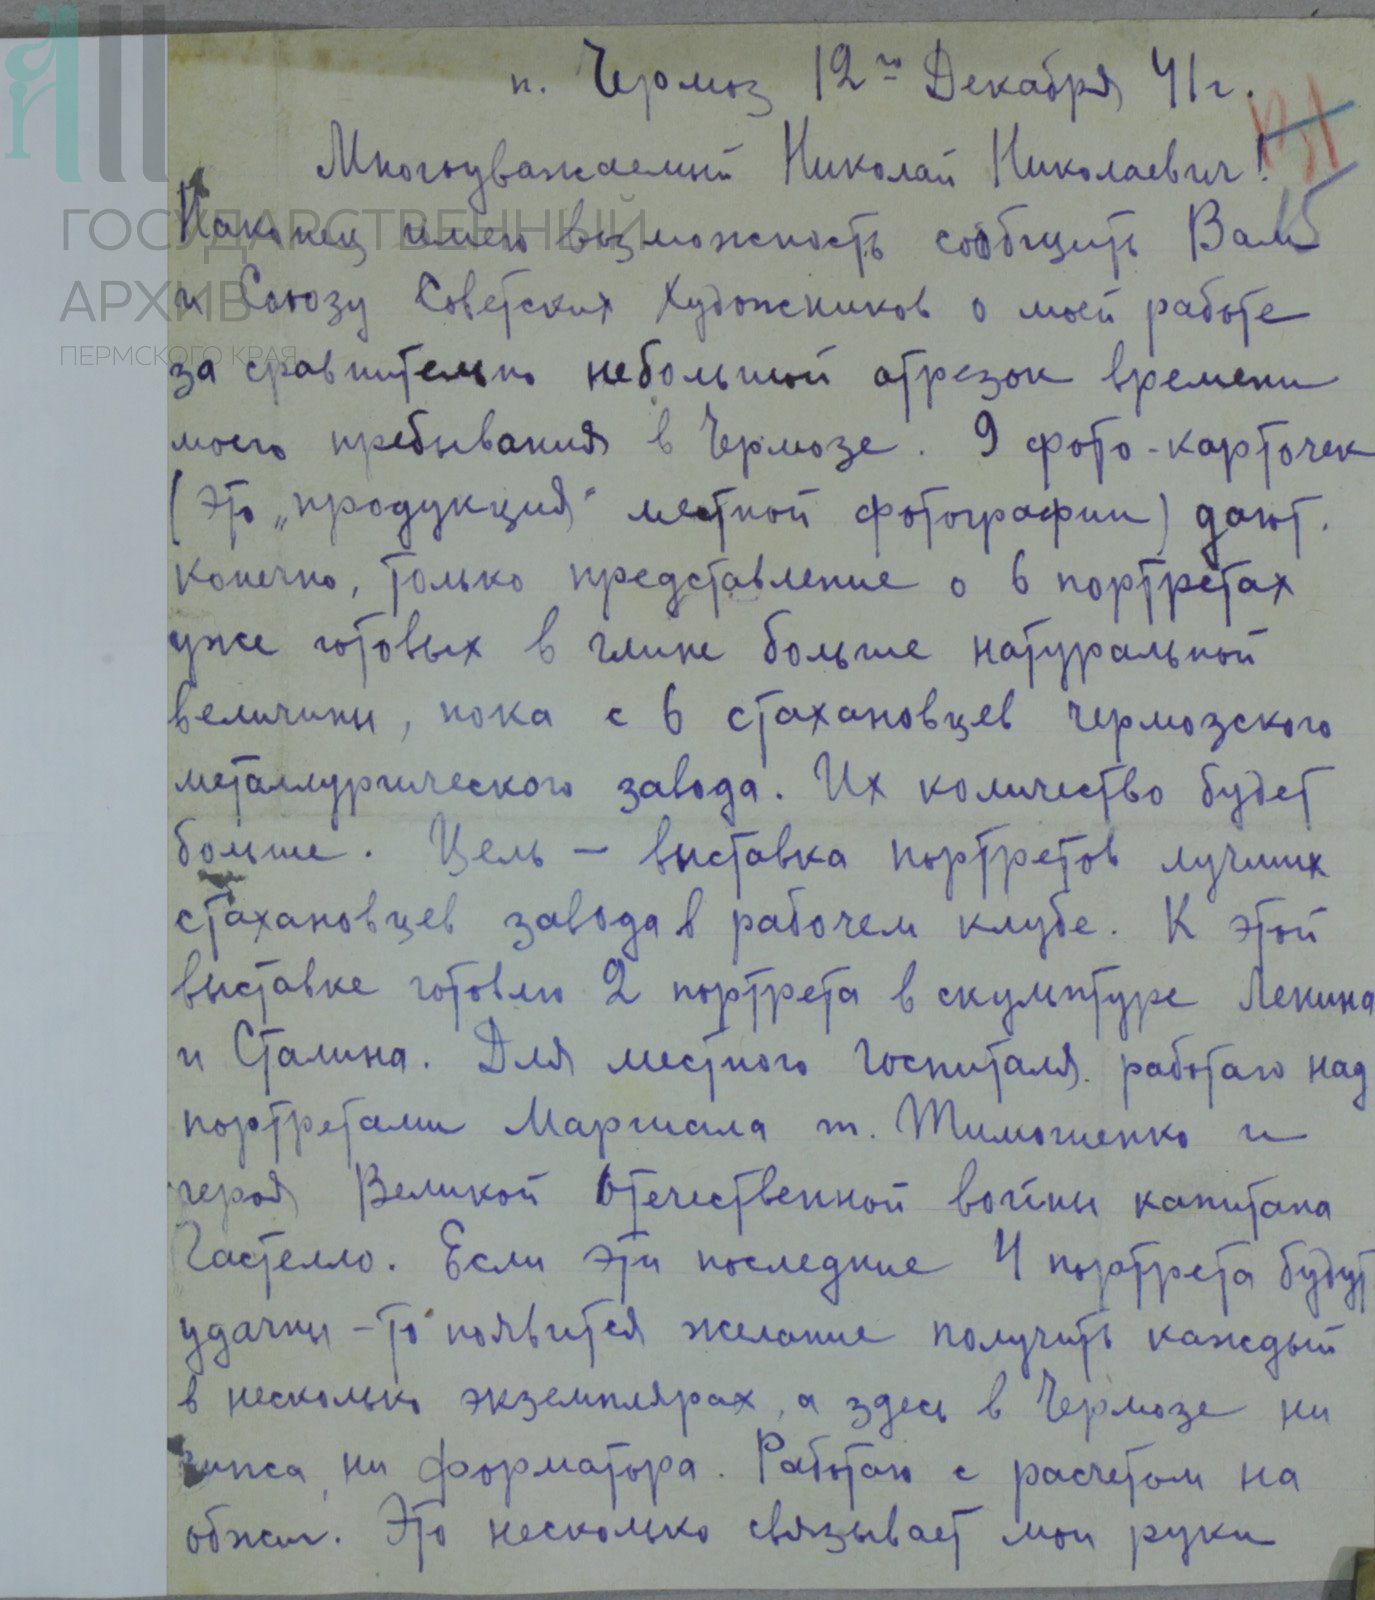 п. Чермоз 12го Декабря 41 г.
Многоуважаемый Николай Николаевич!
Наконец имею возможность сообщить Вам
и Союзу Советских Художников о моей работе
за сравнительно небольшой отрезок времени
моего пребывания в Чермозе. 9 фото-карточек
(это „продукция“ местной фотографии) дают.
конечно, только представление о 6 портретах
уже готовых в глине больше натуральной
величины, пока с 6 стахановцев чермозского
металлургического завода. Их количество будет
больше. Цель – выставка портретов лучших
стахановцев завода в рабочем клубе. К этой
выставке готовлю 2 портрета в скульптуре Ленина
и Сталина. Для местного госпиталя работаю над
портретами Маршала т. Тимошенко и
героя Великой Отечественной войны капитана
Гастелло. Если эти последние 4 портрета будут
удачны – то появится желание получить каждый
в несколько экземплярах, а здесь в Чермозе ни
гипса, ни форматора. Работаю с расчетом на
обжиг. Это несколько связывает мои руки
15
ГОСУДАРСТВЕННЫЙ
АРХИВ
ПЕРМСКОГО КРАЯ